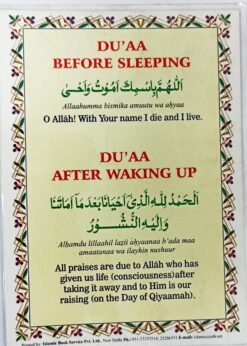 DU'AA
BEFORE SLEEPING
اَللّٰهُمَّ بِاسْمِكَ اَمُوْتُ وَاَحْيٰى
Allaahumma bismika amuutu wa aḥyaa
O Allâh! With Your name I die and I live.
DU'AA
AFTER WAKING UP
اَلْحَمْدُ لِلّٰهِ الَّذِىْ اَحْيَانَا بَعْدَ مَا اَمَاتَنَا
وَاِلَيْهِ النُّشُوْرُ
Alḥamdu lillaahil lazii aḥyaanaa b'ada maa
amaatanaa wa ilayhin nushuur
All praises are due to Allâh who has
given us life (consciousness)after
taking it away and to Him is our
raising (on the Day of Qiyaamah).
Printed by: Islamic Book Service Pvt. Ltd. New Delhi Ph.: